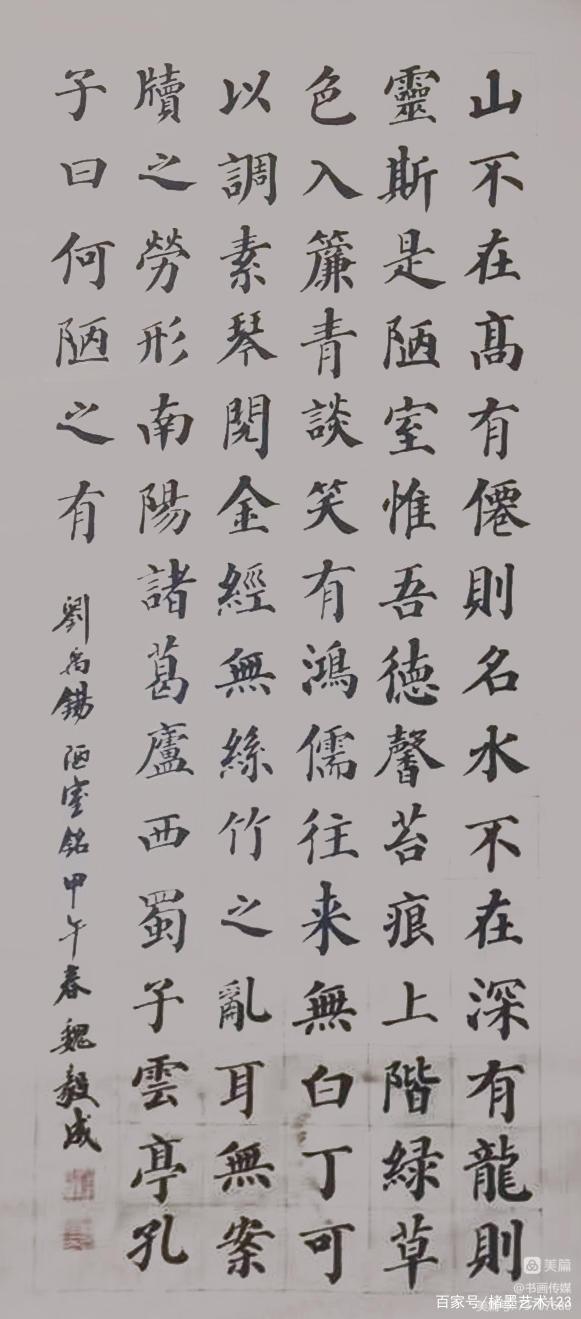 山不在高有僊則名水不在深有龍則
靈斯是陋室惟吾德馨苔痕上階緑草
色入簾青談笑有鴻儒往来無白丁可
以調素琴閱金經無絲竹之亂耳無案
牘之勞形南陽諸葛廬西蜀子雲亭孔
子曰何陋之有
劉禹錫陋室銘甲午春魏毅成
美篇
@书画传媒
百家号/楮墨艺术123